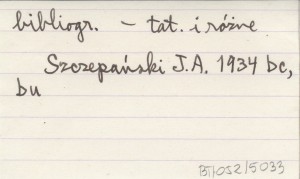 bibliogr. – tat. i różne
Szczepański J.A. 1934 bc,
bu
BT/052/5033